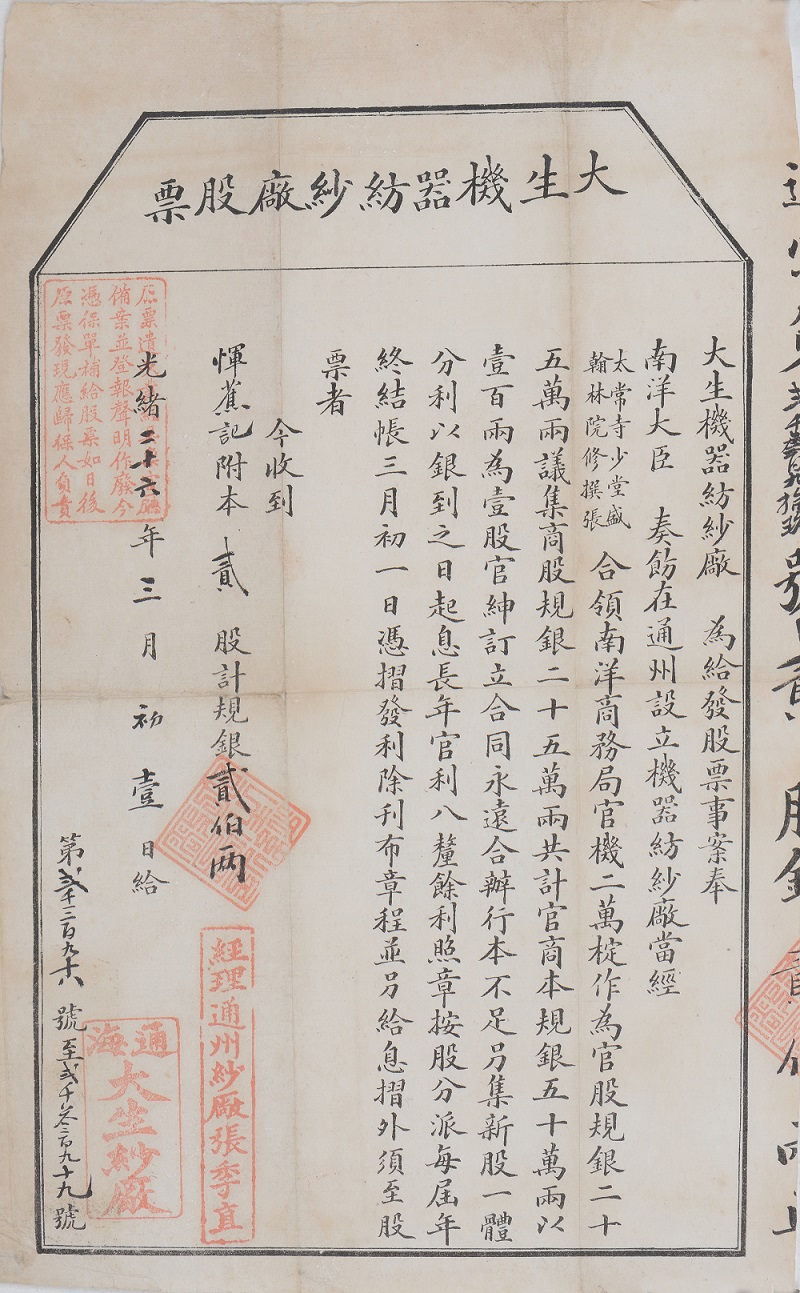 大生機器紡紗廠股票
大生機器紡紗廠 為給發股票事案奉
南洋大臣 奏飭在通州設立機器紡紗廠當經
太常寺少堂盛
翰林院修撰張
合領南洋商務局官機二萬椗作為官股規銀二十
五萬兩議集商股規銀二十五萬兩共計官商本規銀五十萬兩以
壹百兩為壹股官紳訂立合同永遠合辦行本不足另集新股一體
分利以銀到之日起息長年官利八釐餘利照章按股分派每屆年
終結帳三月初一日憑摺發利除刊布章程並另給息摺外須至股
票者
今收到
惲蕉記附本 貳 股計規銀貳伯兩
光緒二十六年三月 初壹日給
第貳千三百九十八號至貳千叁百九十九號
原票遺
備案並登報聲明作廢今
憑保單補給股票如日後
原票發現應歸保人負責
經理通州紗廠張季直
通海
大生紗廠
號
股銀